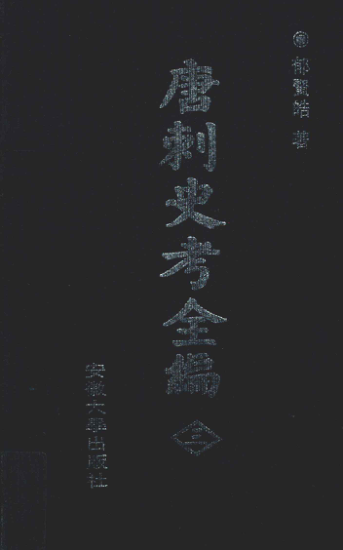 郁賢皓 著
唐刺史考全編
三
安徽大學出版社